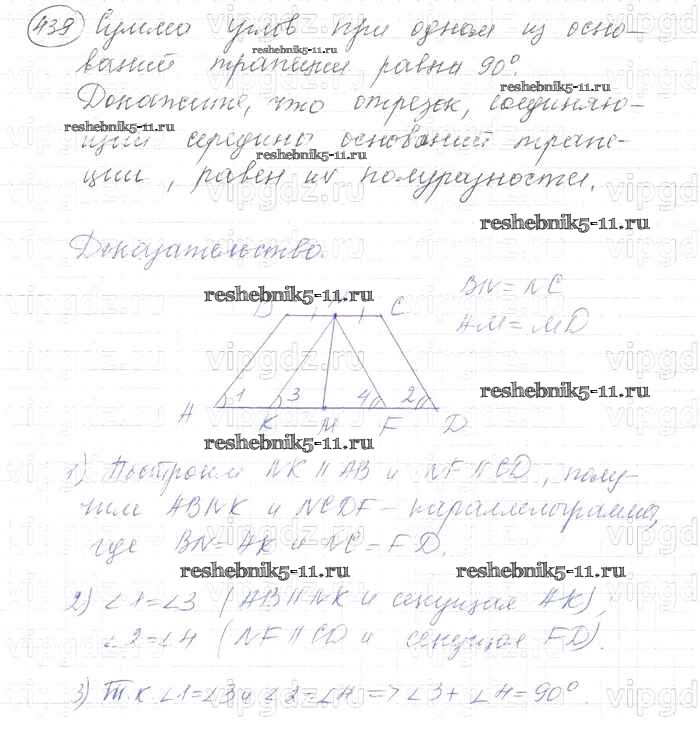 439 Сумма углов при одном из осно-
ваний трапеции равна 90°.
Докажите, что отрезок, соединяю-
щий середины оснований трапе-
ции, равен их полуразности.
Доказательство.
BN = NC
AM = MD
B N C
1 3 4 2
A K M F D
1) Построим NK || AB и NF || CD, полу-
чим ABNK и NCDF – параллелограммы,
где BN = AK и NC = FD.
2) ∠1 = ∠3 (AB || NK и секущая AK),
∠2 = ∠4 (NF || CD и секущая FD).
3) Т.к. ∠1 = ∠3 и ∠2 = ∠4 => ∠3 + ∠4 = 90°.
reshebnik5-11.ru
reshebnik5-11.ru
reshebnik5-11.ru
reshebnik5-11.ru
reshebnik5-11.ru
reshebnik5-11.ru
reshebnik5-11.ru
reshebnik5-11.ru
reshebnik5-11.ru
reshebnik5-11.ru